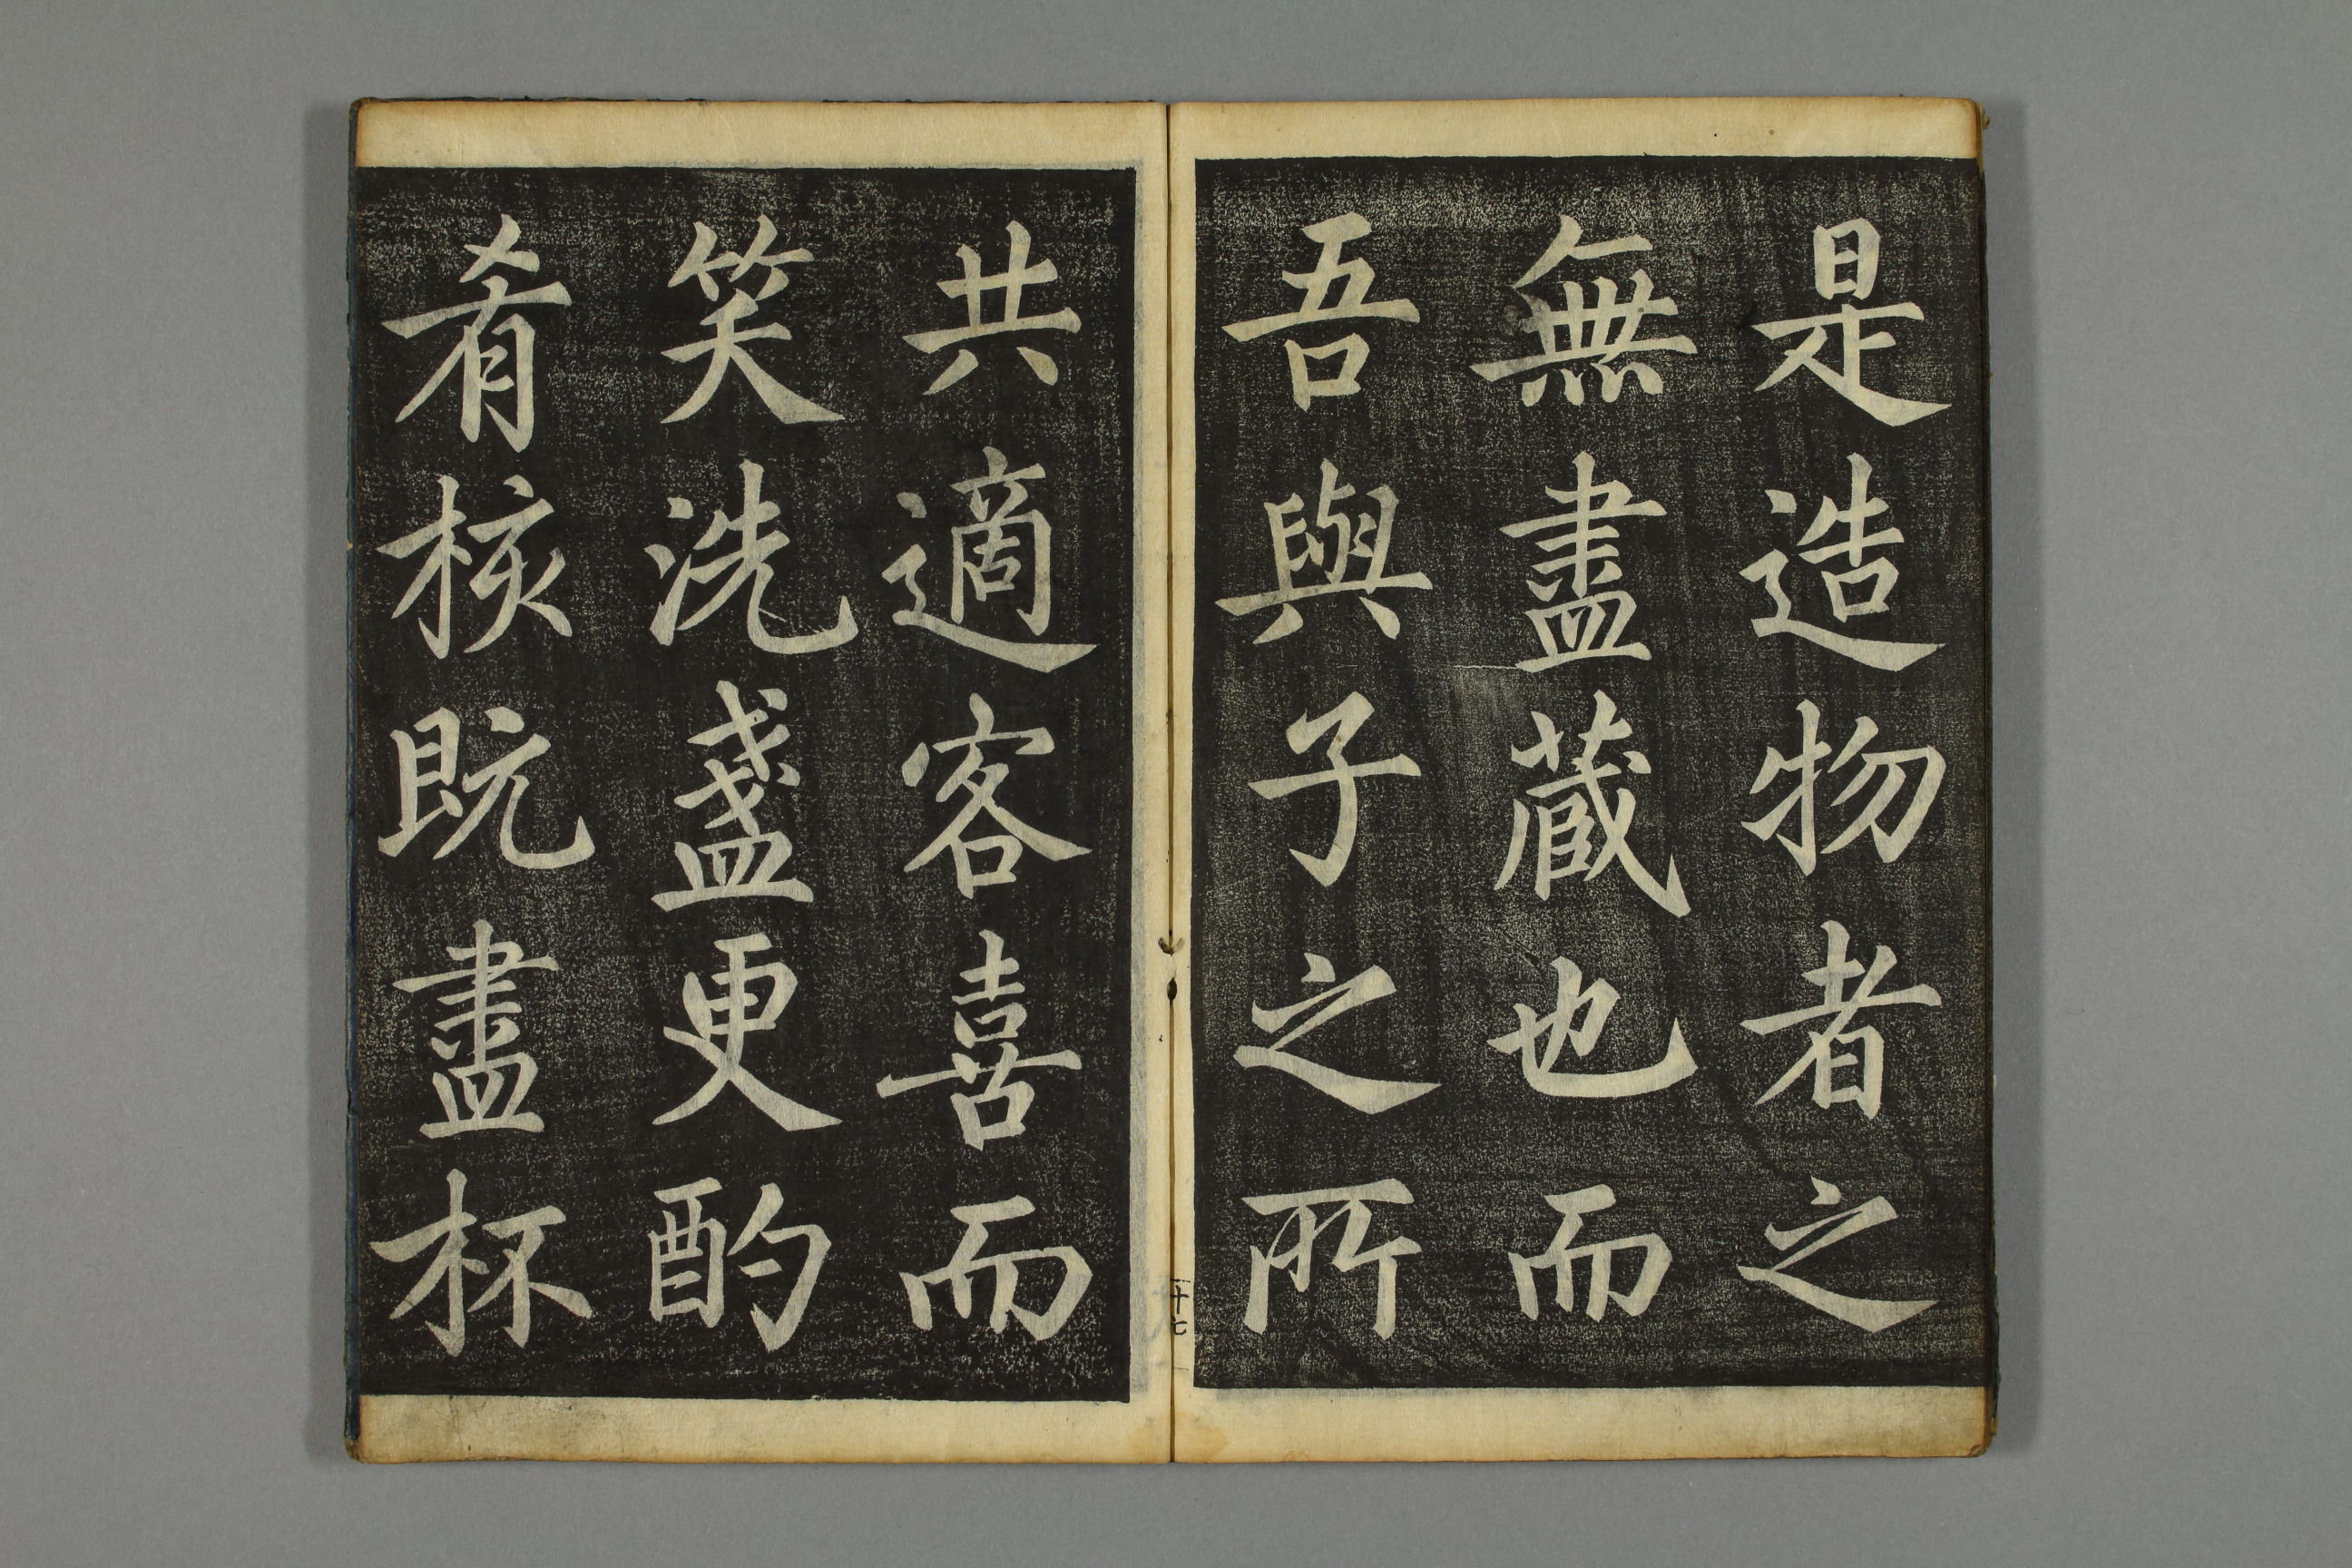 是造物者之
無盡蔵也而
吾與子之所
十七
共適客喜而
笑洗盞更酌
肴核既盡杯